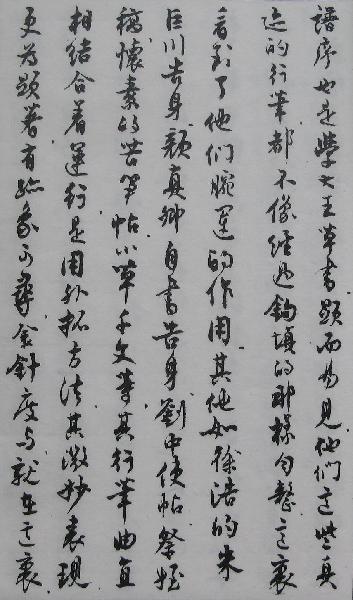 譜序也是學大王草書顯而易見他們這些真
迹的行筆都不像經過鉤填的那樣勻整這裏
看到了他們腕運的作用其他如徐浩的朱
巨川告身顏真卿自書告身劉中使帖祭姪
稿懷素的苦筍帖小草千文等其行筆曲直
相結合着運行是用外拓方法其微妙表現
更為顯著有跡象可尋金針度与就在這裏